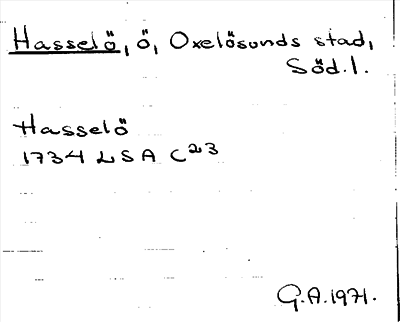 Hasselö, ö, Oxelösunds stad,
Söd.l.
Hasselö
1734 LSA C23
G.A.1971.